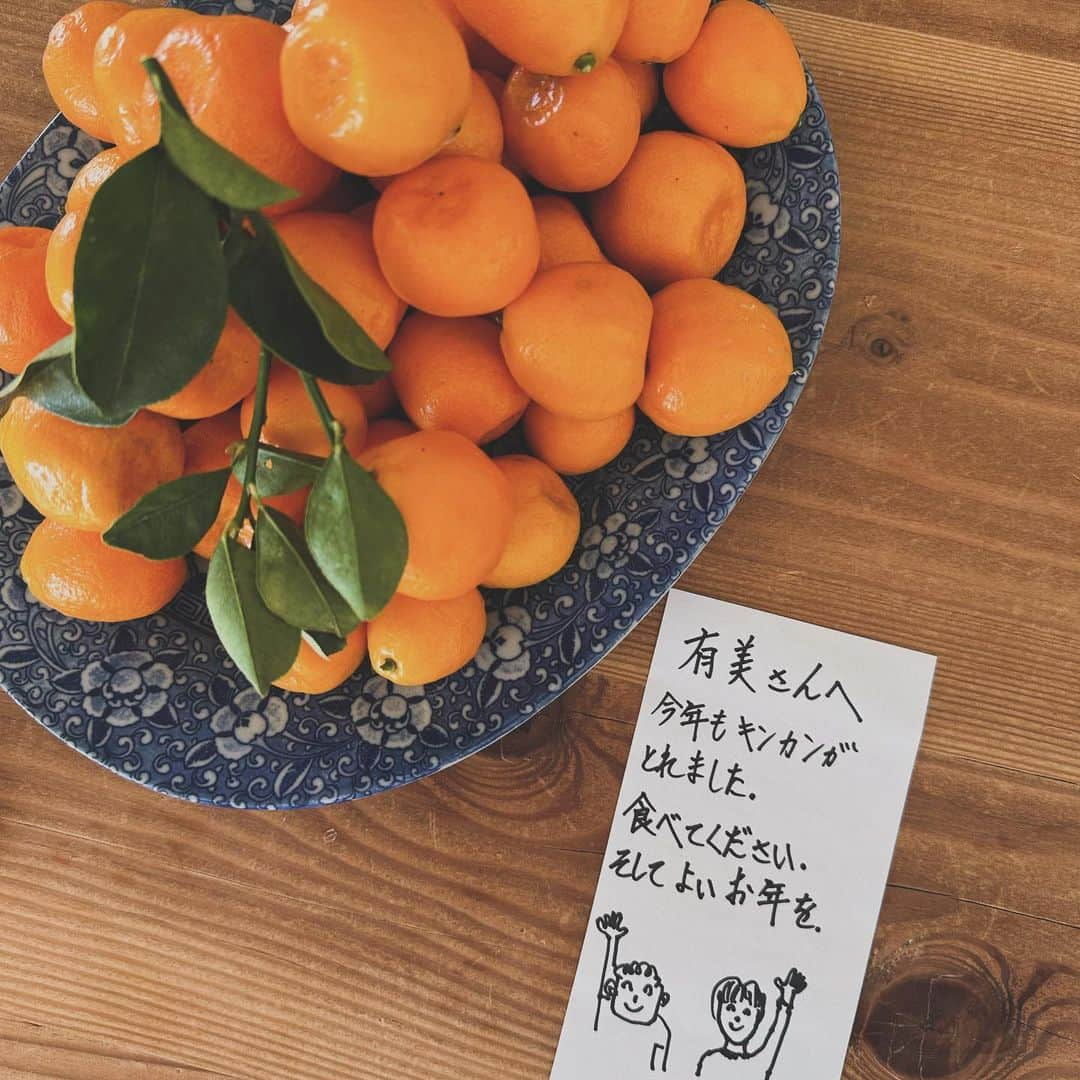 有美さんへ
今年もキンカンが
とれました.
食べてください.
そしてよいお年を.